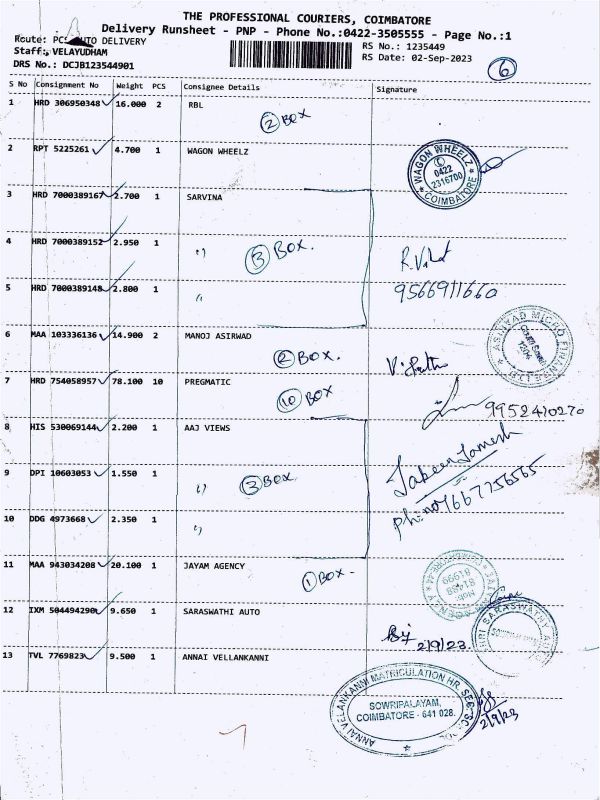 THE PROFESSIONAL COURIERS, COIMBATORE
Delivery Runsheet - PNP - Phone No.:0422-3505555 - Page No.:1
Route: PCS AUTO DELIVERY
Staff: VELAYUDHAM
DRS No.: DCJB123544901
RS No.: 1235449
RS Date: 02-Sep-2023
6
S No Consignment No Weight PCS Consignee Details Signature
1 HRD 306950348 16.000 2 RBL
2 BOX
2 RPT 5225261 4.700 1 WAGON WHEELZ
WAGON WHEELZ
0422
2316700
COIMBATORE
3 HRD 7000389167 2.700 1 SARVINA
4 HRD 7000389152 2.950 1 "
3 BOX.
5 HRD 7000389148 2.800 1 "
9566911660
6 MAA 103336136 14.900 2 MANOJ ASIRWAD
2 BOX.
ASIRVAD MICRO FIN
7 HRD 754058957 78.100 10 PREGMATIC
10 BOX
9952410270
8 HIS 530069144 2.200 1 AAJ VIEWS
9 DPI 10603053 1.550 1 "
3 BOX
Ph: no 7667756565
10 DDG 4973668 2.350 1 "
11 MAA 943034208 20.100 1 JAYAM AGENCY
1 BOX-
12 IXM 504494290 9.650 1 SARASWATHI AUTO
2/9/23.
SRI SARASWATHI
13 TVL 7769823 9.500 1 ANNAI VELLANKANNI
ANNAI VELANKANNI MATRICULATION HR. SEC. SCHOOL
SOWRIPALAYAM,
COIMBATORE - 641 028.
2/9/23